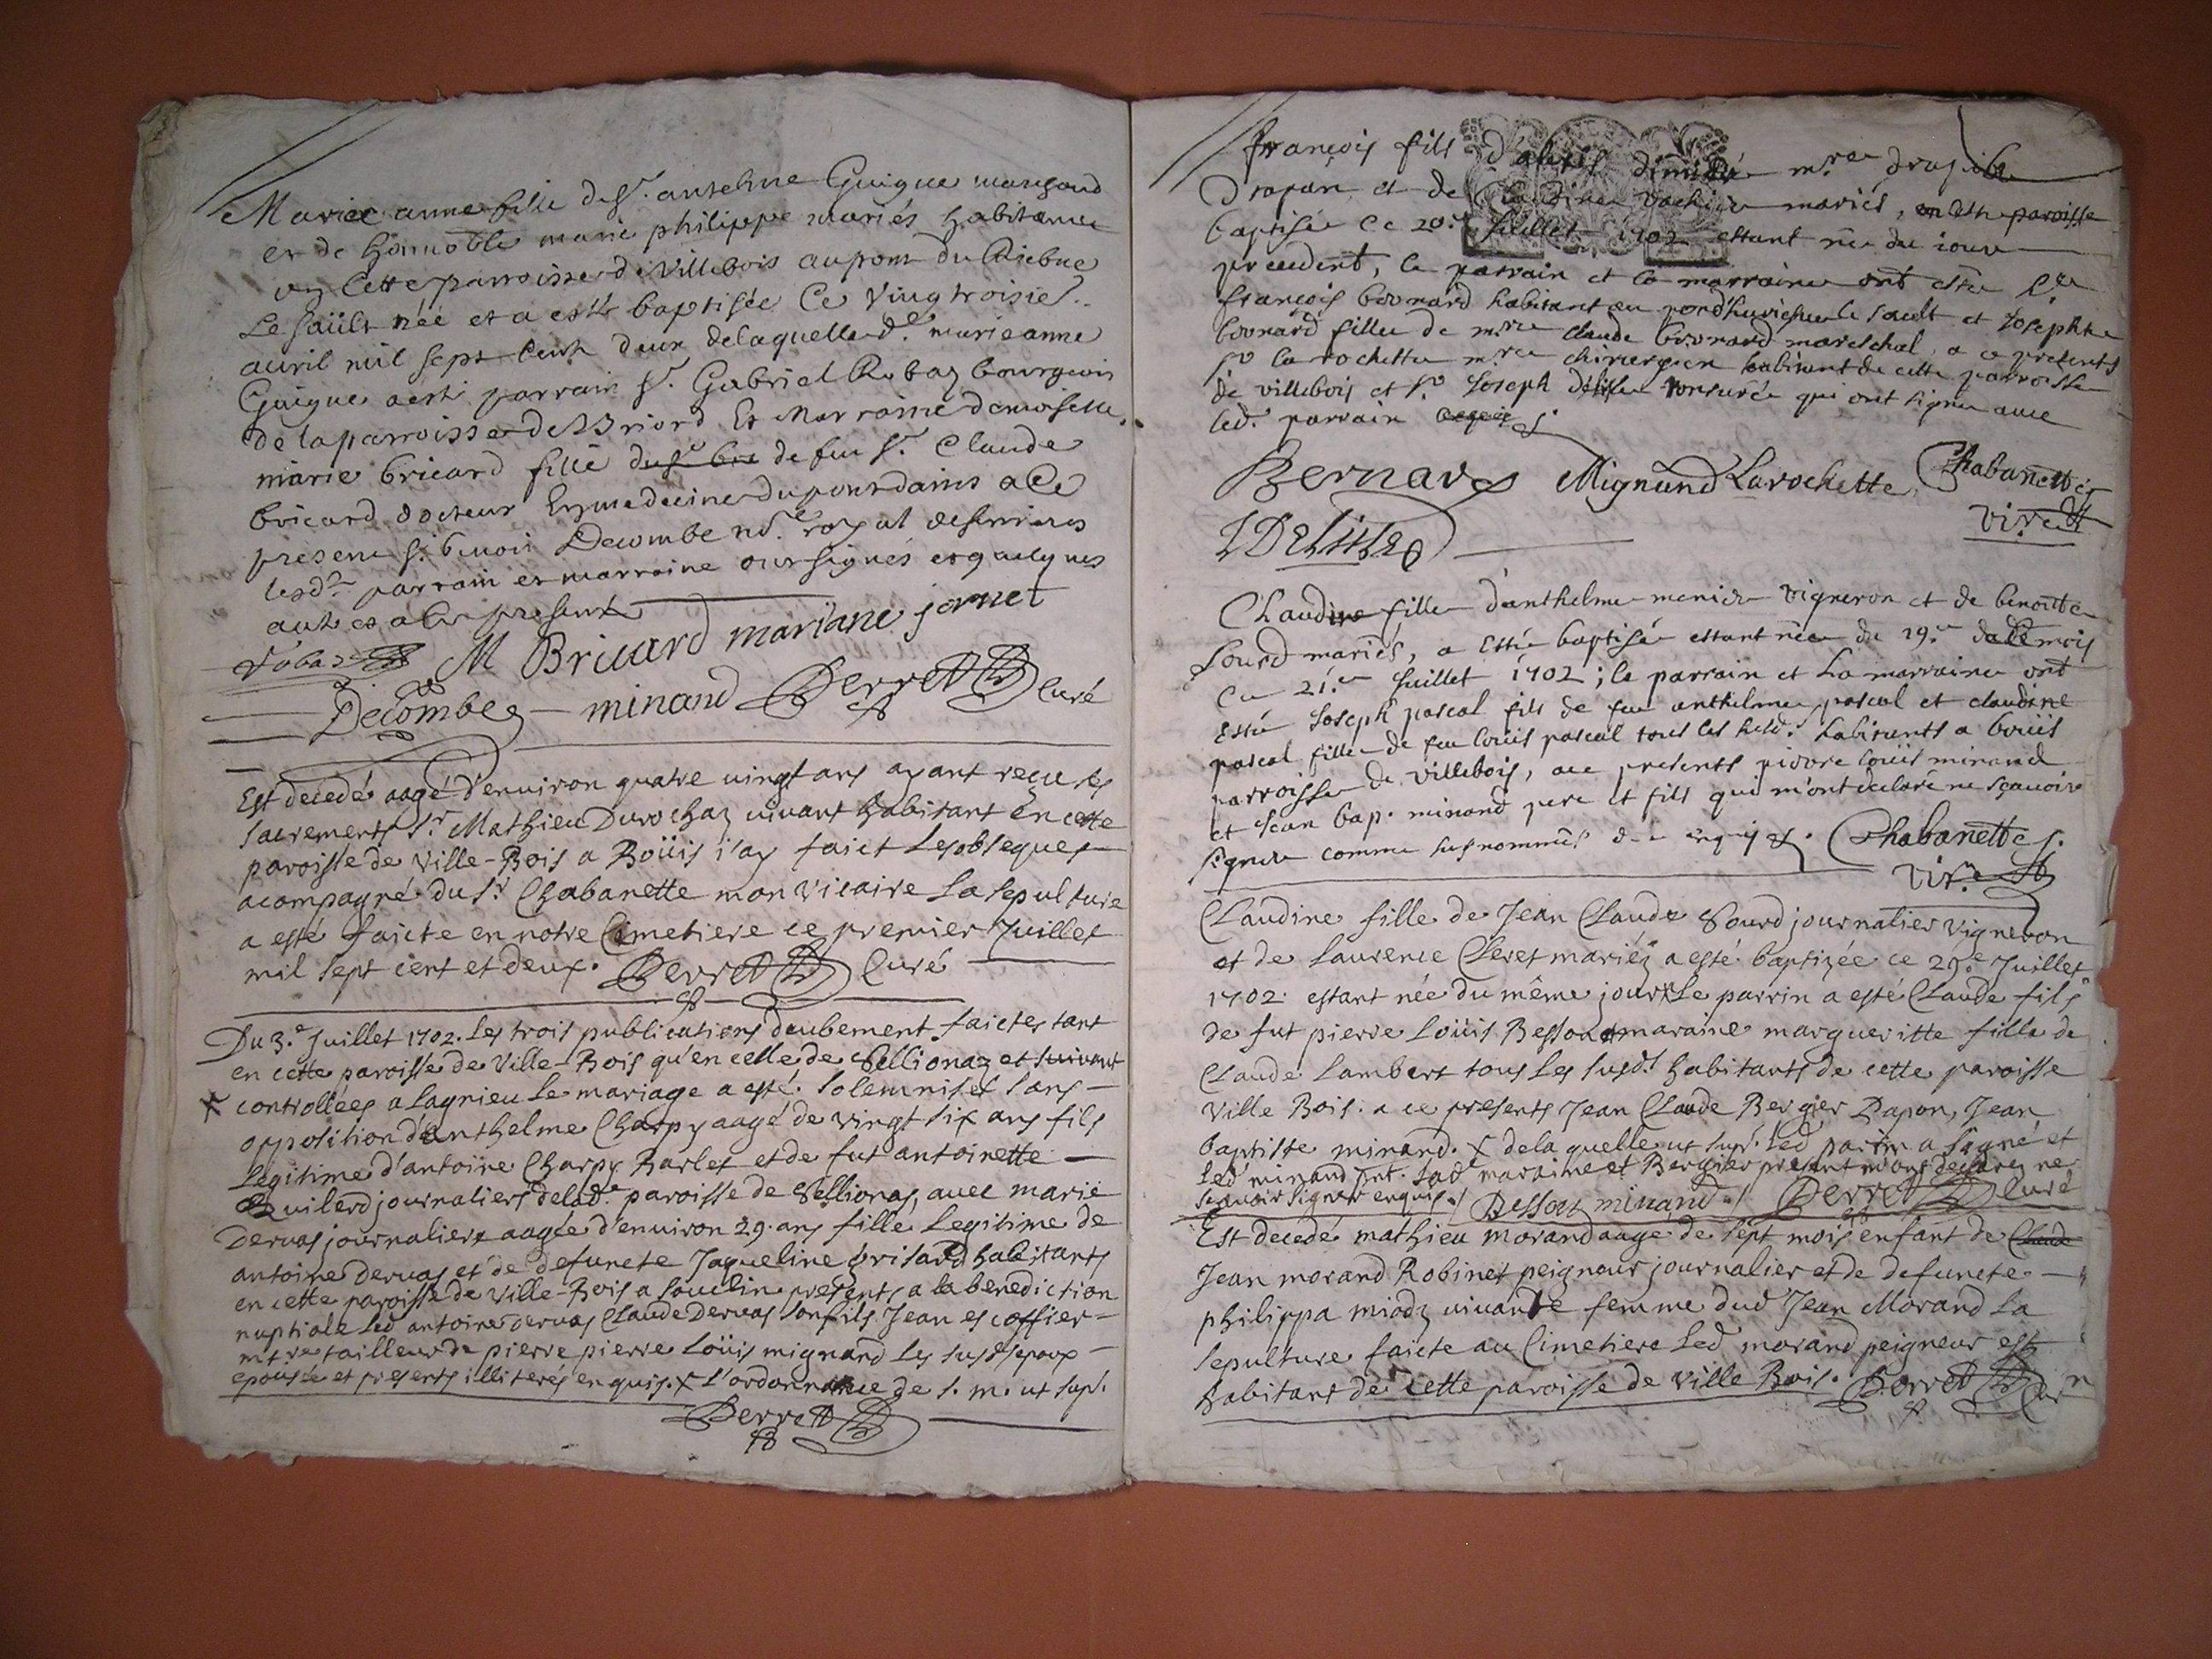 Marie anne fille de Sr. antelme Guigue marchand
et de honnoble marie philippe mariés habitants
en Cette parroisse de Villebois au pont du
Le Saült née et a esté baptisée Ce Vingtroisie.
auril mil sept cents deux de laquelle d.e marie anne
Guigue a esté parrain Sr. Gabriel Robaz bourgeois
de la parroisse de Briord Et Marraine demoiselle
marie bricard fille de feu Sr. Claude
bricard docteur En medecine du pont dains a Ce
present Sr. benoit Decombe no.re royal
lesd. parrain et marraine ont signés et quelques
autres a Ce presents
Robaz M Bricard mariane jornet
Decombes minand Perret Curé
Est decedé aagé d'enuiron quatre uingt ans ayant reçu les
sacrements Sr. Mathieu Durochaz uiuant habitant en cette
paroisse de Ville-Bois a Boüis i'ay faict les obseques
acompagné du Sr. Chabanette mon Vicaire La sepulture
a esté faicte en notre Cimetiere ce premier Juillet
mil sept cent et deux. Perret Curé
Du 3.e Juillet 1702. Les trois publications deubement faictes tant
en cette paroisse de Ville-Bois qu'en celle de Sellionaz et suiuant
x controllées a Lagnieu Le mariage a esté solemnisé sans
opposition d'anthelme Charpy aagé de vingt six ans fils
Legitime d'antoine Charpy Barlet et de fut antoinette
Quilerd journaliers de lad.e paroisse de Sellionas, auec marie
Deruas journaliere aagée d'enuiron 29. ans fille Legitime de
antoine Deruas et de defuncte Jaqueline brisard habitants
en cette paroisse de Ville-Bois a Souclin presents a la benediction
nuptiale Led antoine Deruas Claude Deruas son fils Jean escoffier
mt.re tailleur de pierre pierre Loüis mignand Les susd. epoux
epousée et presents illiterés enquis. x L'ordonnance de s. m. ut sup.
Perret
françois fils d'alexis dimitié m.re drapier
Drapan et de Claudine Vachier mariés, en cette paroisse
baptisé Ce 20.e Juillet 1702 estant né du iour
precedent, le parrain et la marraine ont esté Sr.
françois bernard habitant au pond le Sault et Josephte
bernard fille de m.re claude bernard mareschal, a ce presents
Sr. la rochette m.re chirurgien habitant de cette parroisse
de villebois et Sr. Joseph délisle tonsuré qui ont signe auec
led. parrain
Bernard Mignand Larochette Chabanettes
vi.re
J Delisle
Claudine fille d'anthelme menier vigneron et de benoitte
Sourd mariés, a Esté baptisée estant née du 19.e dud mois
Ce 21.e Juillet 1702; le parrain et La marraine ont
Esté Joseph pascal fils de feu anthelme pascal et claudine
pascal fille de feu loüis pascal tous les susd. habitants a boüis
parroisse de villebois, a ce presents pierre loüis minand
et Jean bap. minand pere et fils qui m'ont declaré ne sçauoir
signer comme susnommés de ce enquis. Chabanettes.
vi.re
Claudine fille de Jean Claude Sourd journalier vigneron
et de Laurence Cleret mariéz a esté baptizée ce 29.e Juillet
1702. estant née du même jour x Le parrin a esté Claude fils
de fut pierre Loüis Besson et maraine margueritte fille de
Claude Lambert tous Les susd. habitants de cette paroisse
Ville Bois. a ce presents Jean Claude Bergier Dapon, Jean
baptiste minand. x de la quelle ut sup. Led parrin a signé et
Led minand pnt. Lad maraine et Bergier present m'ons declarez ne
sçauoir signer enquis. Besson minand. Perret Curé
Est decedé mathieu morand aagé de sept mois enfant de Claude
Jean morand Robinet peigneur journalier et de defuncte
philippa miodz uiuante femme dud Jean Morand La
sepulture faicte au Cimetiere Led morand peigneur est
habitant de cette paroisse de Ville Bois. Perret Curé